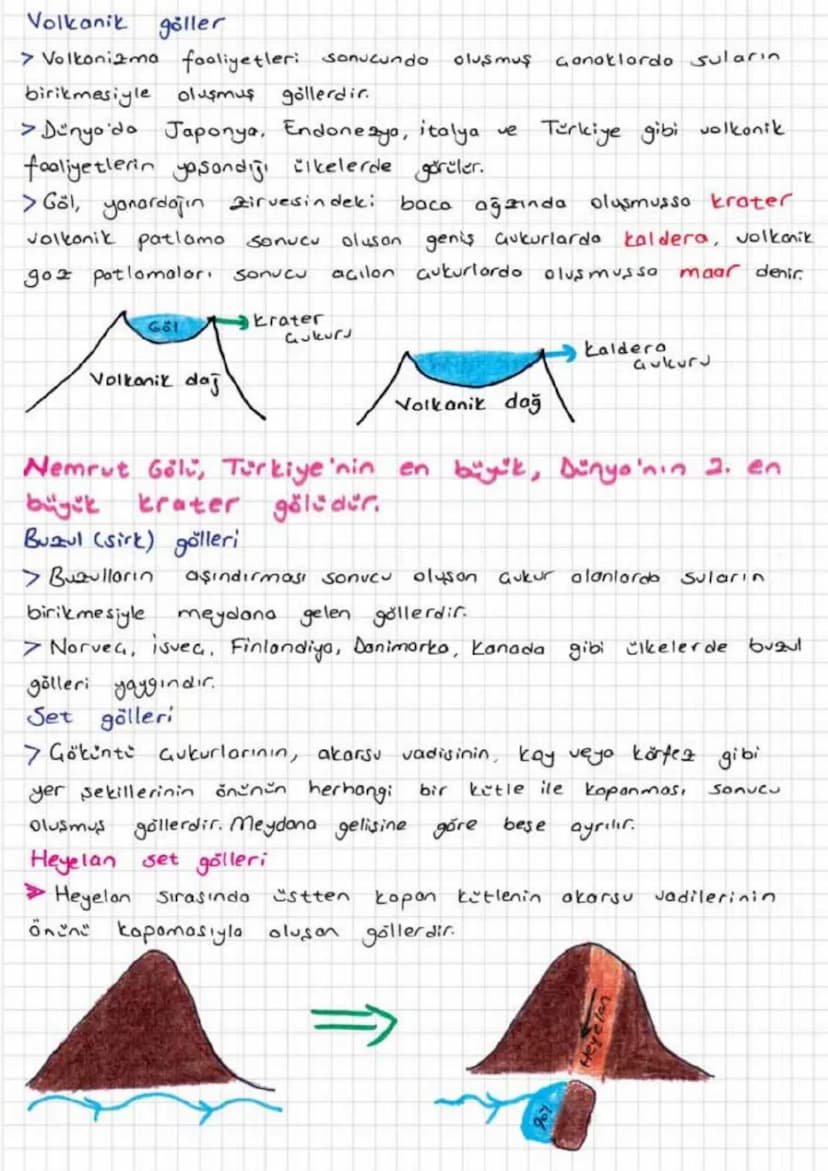 Volkanik göller
> Volkanizma faaliyetleri sonucunda oluşmuş çanaklarda suların
birikmesiyle oluşmuş göllerdir.
> Dünya'da Japonya, Endonezya, italya ve Türkiye gibi volkanik
faaliyetlerin yaşandığı ülkelerde görülür.
> Göl, yanardağın zirvesindeki baca ağzında oluşmuşsa krater
volkanik patlama sonucu oluşan geniş çukurlarda kaldera, volkanik
gaz patlamaları sonucu açılan çukurlarda oluşmuşsa maar denir.
Göl
krater
çukuru
Volkanik dağ
kaldera
çukuru
Volkanik dağ
Nemrut Gölü, Türkiye'nin en büyük, Dünya'nın 2. en
büyük krater gölüdür.
Buzul (sirk) gölleri
> Buzulların aşındırması sonucu oluşan çukur alanlarda suların
birikmesiyle meydana gelen göllerdir.
> Norveç, isveç, Finlandiya, Danimarka, Kanada gibi ülkelerde buzul
gölleri yaygındır.
Set gölleri
> Çöküntü çukurlarının, akarsu vadisinin, koy veya körfez gibi
yer şekillerinin önünün herhangi bir kütle ile kapanması sonucu
oluşmuş göllerdir. Meydana gelişine göre beşe ayrılır.
Heyelan set gölleri
> Heyelan sırasında üstten kopan kütlenin akarsu vadilerinin
önünü kapamasıyla oluşan göllerdir.
Heyelan
göl